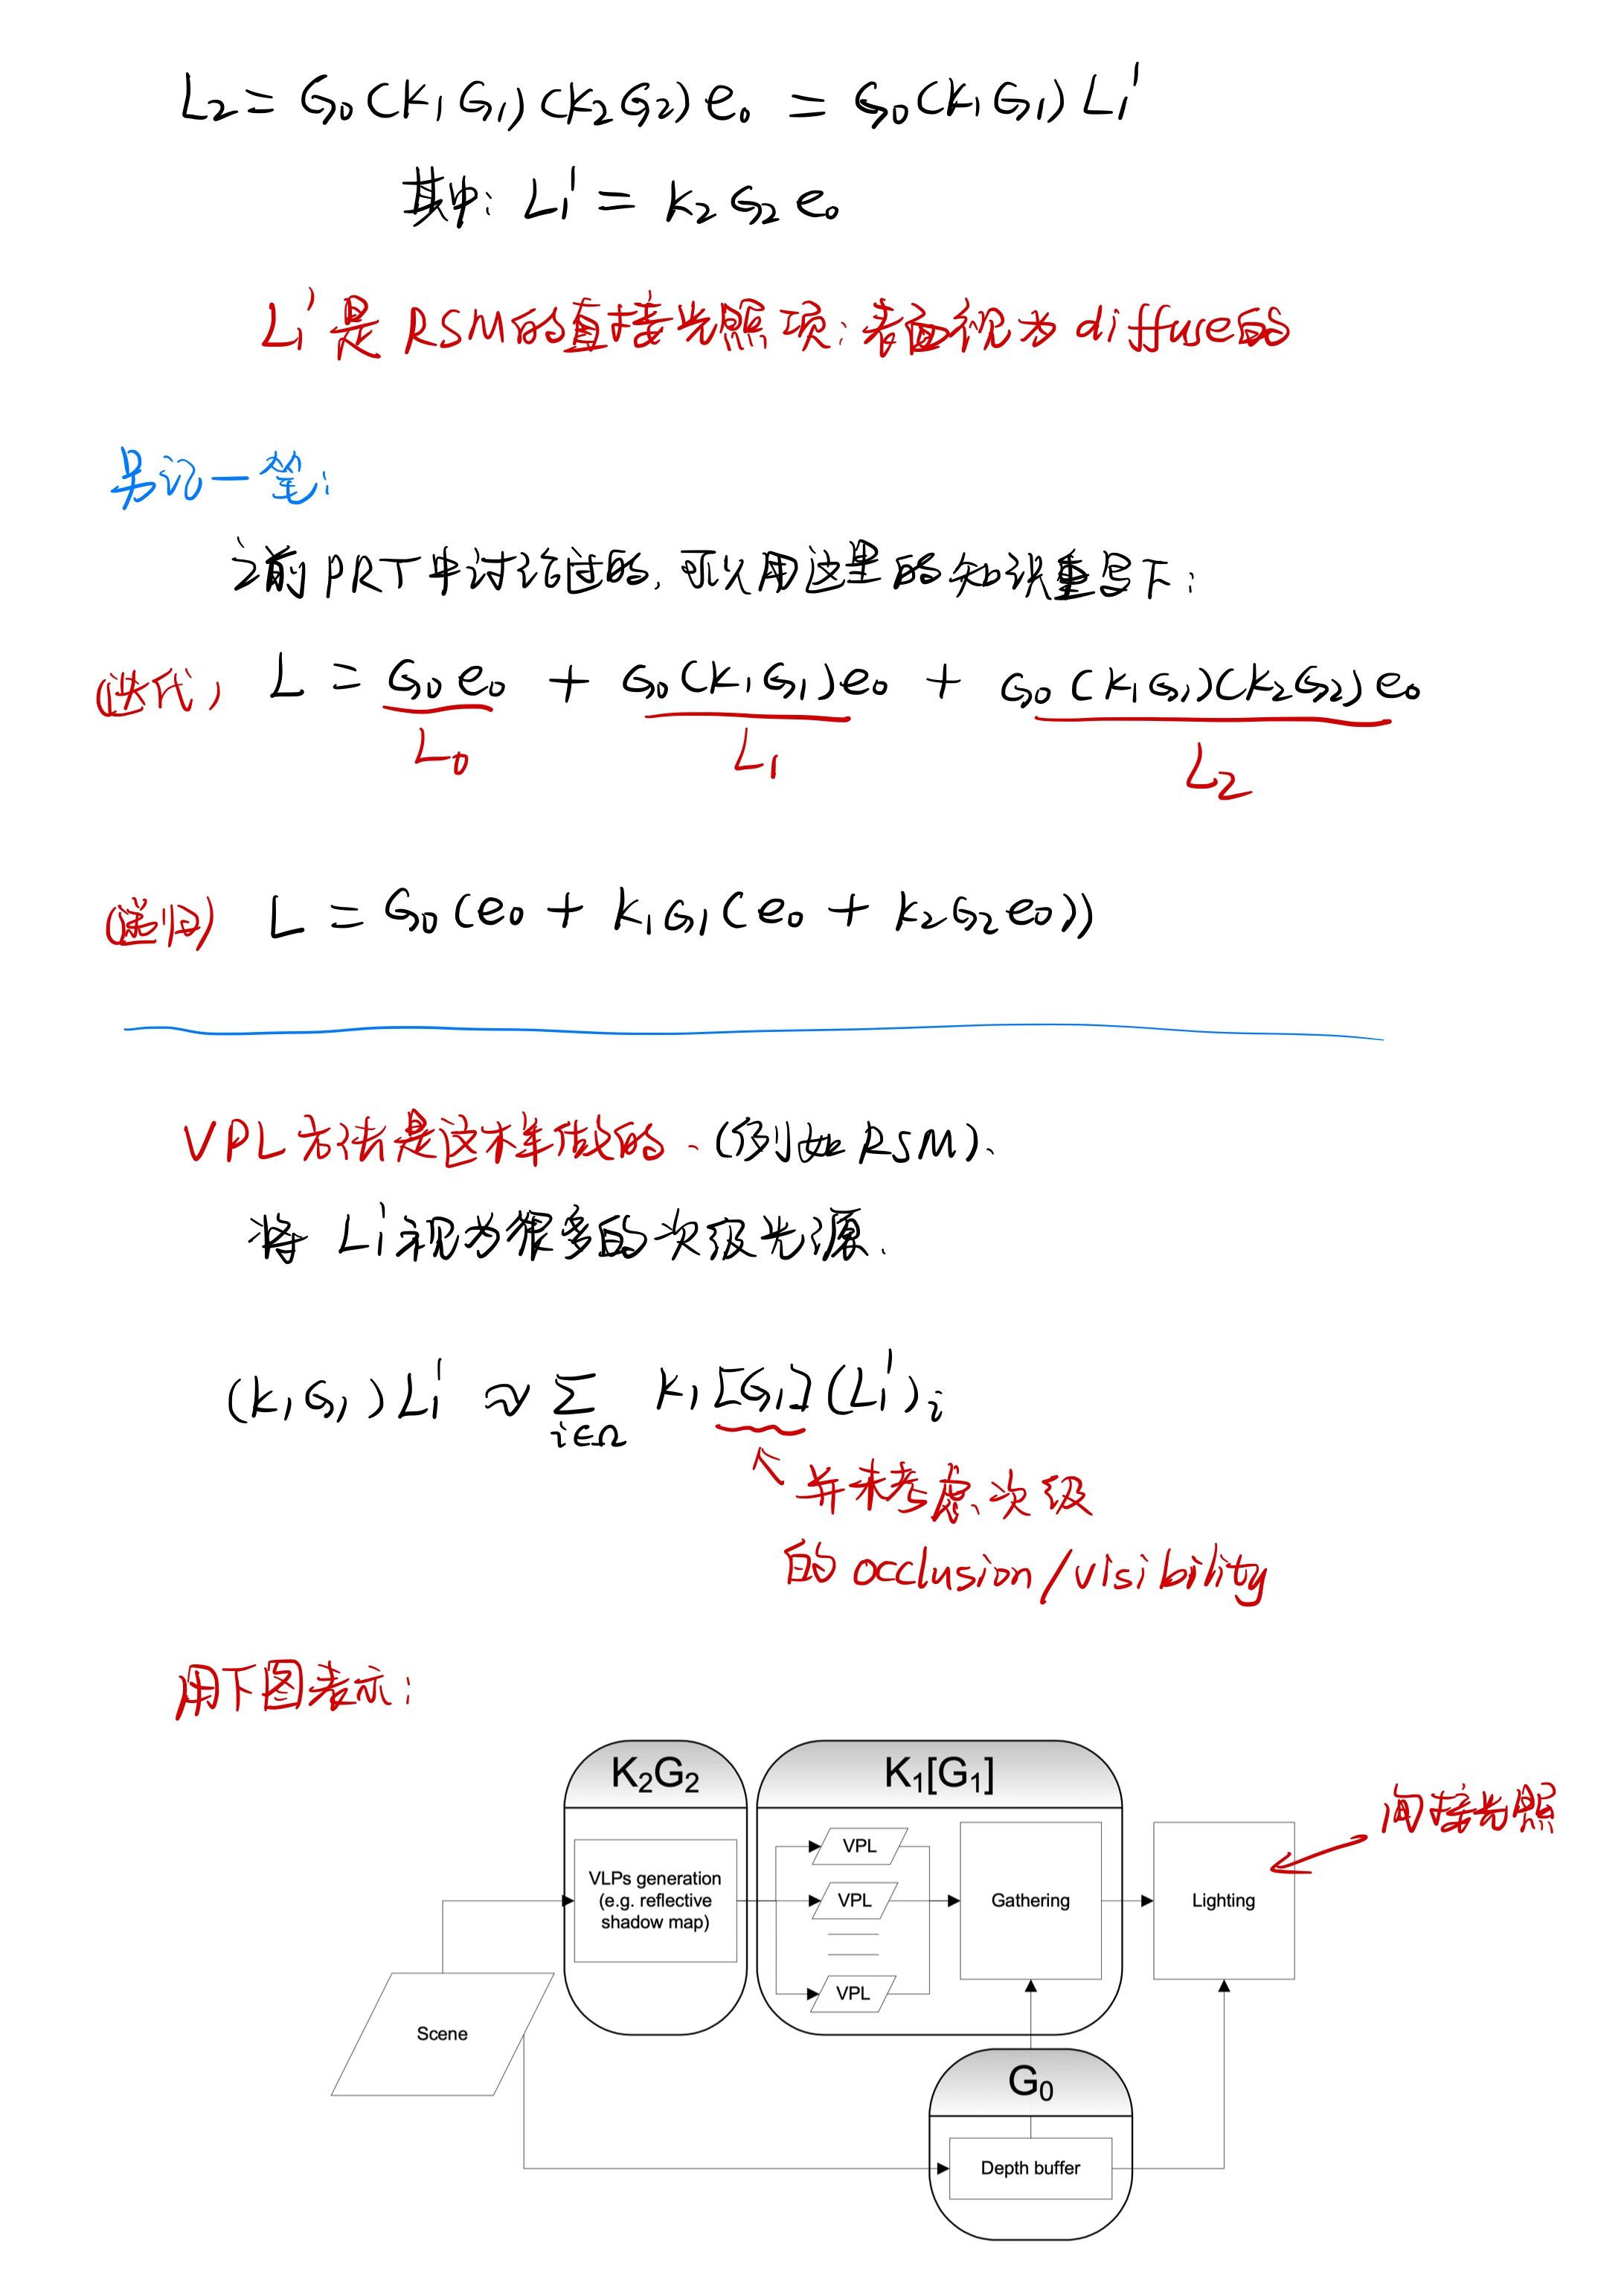 L₂ = G₀(K₁G₁)(K₂G₂)e₀ = G₀(K₁G₁)L₁'
其中: L₁' = K₂G₂e₀
L₁'是RSM的直接光照项: 表面视为diffuse的
另记一笔:
之前PRT中讨论过的, 可以用这里的知识重写下:
(迭代) L = G₀e₀ + G₀(K₁G₁)e₀ + G₀(K₁G₁)(K₂G₂)e₀
L₀ L₁ L₂
(递归) L = G₀(e₀ + K₁G₁(e₀ + K₂G₂e₀))
VPL方法是这样做的、(例如RSM)、
将 L₁'视为很多的次级光源.
(K₁G₁)L₁' ≈ ∑ K₁[G₁](L₁')ᵢ
i∈Ω
并未考虑次级
的occlusion/visibility
用下图表示:
K₂G₂
K₁[G₁]
间接光照
VPL
VLPs generation
(e.g. reflective
shadow map)
VPL
Gathering
Lighting
VPL
Scene
G₀
Depth buffer